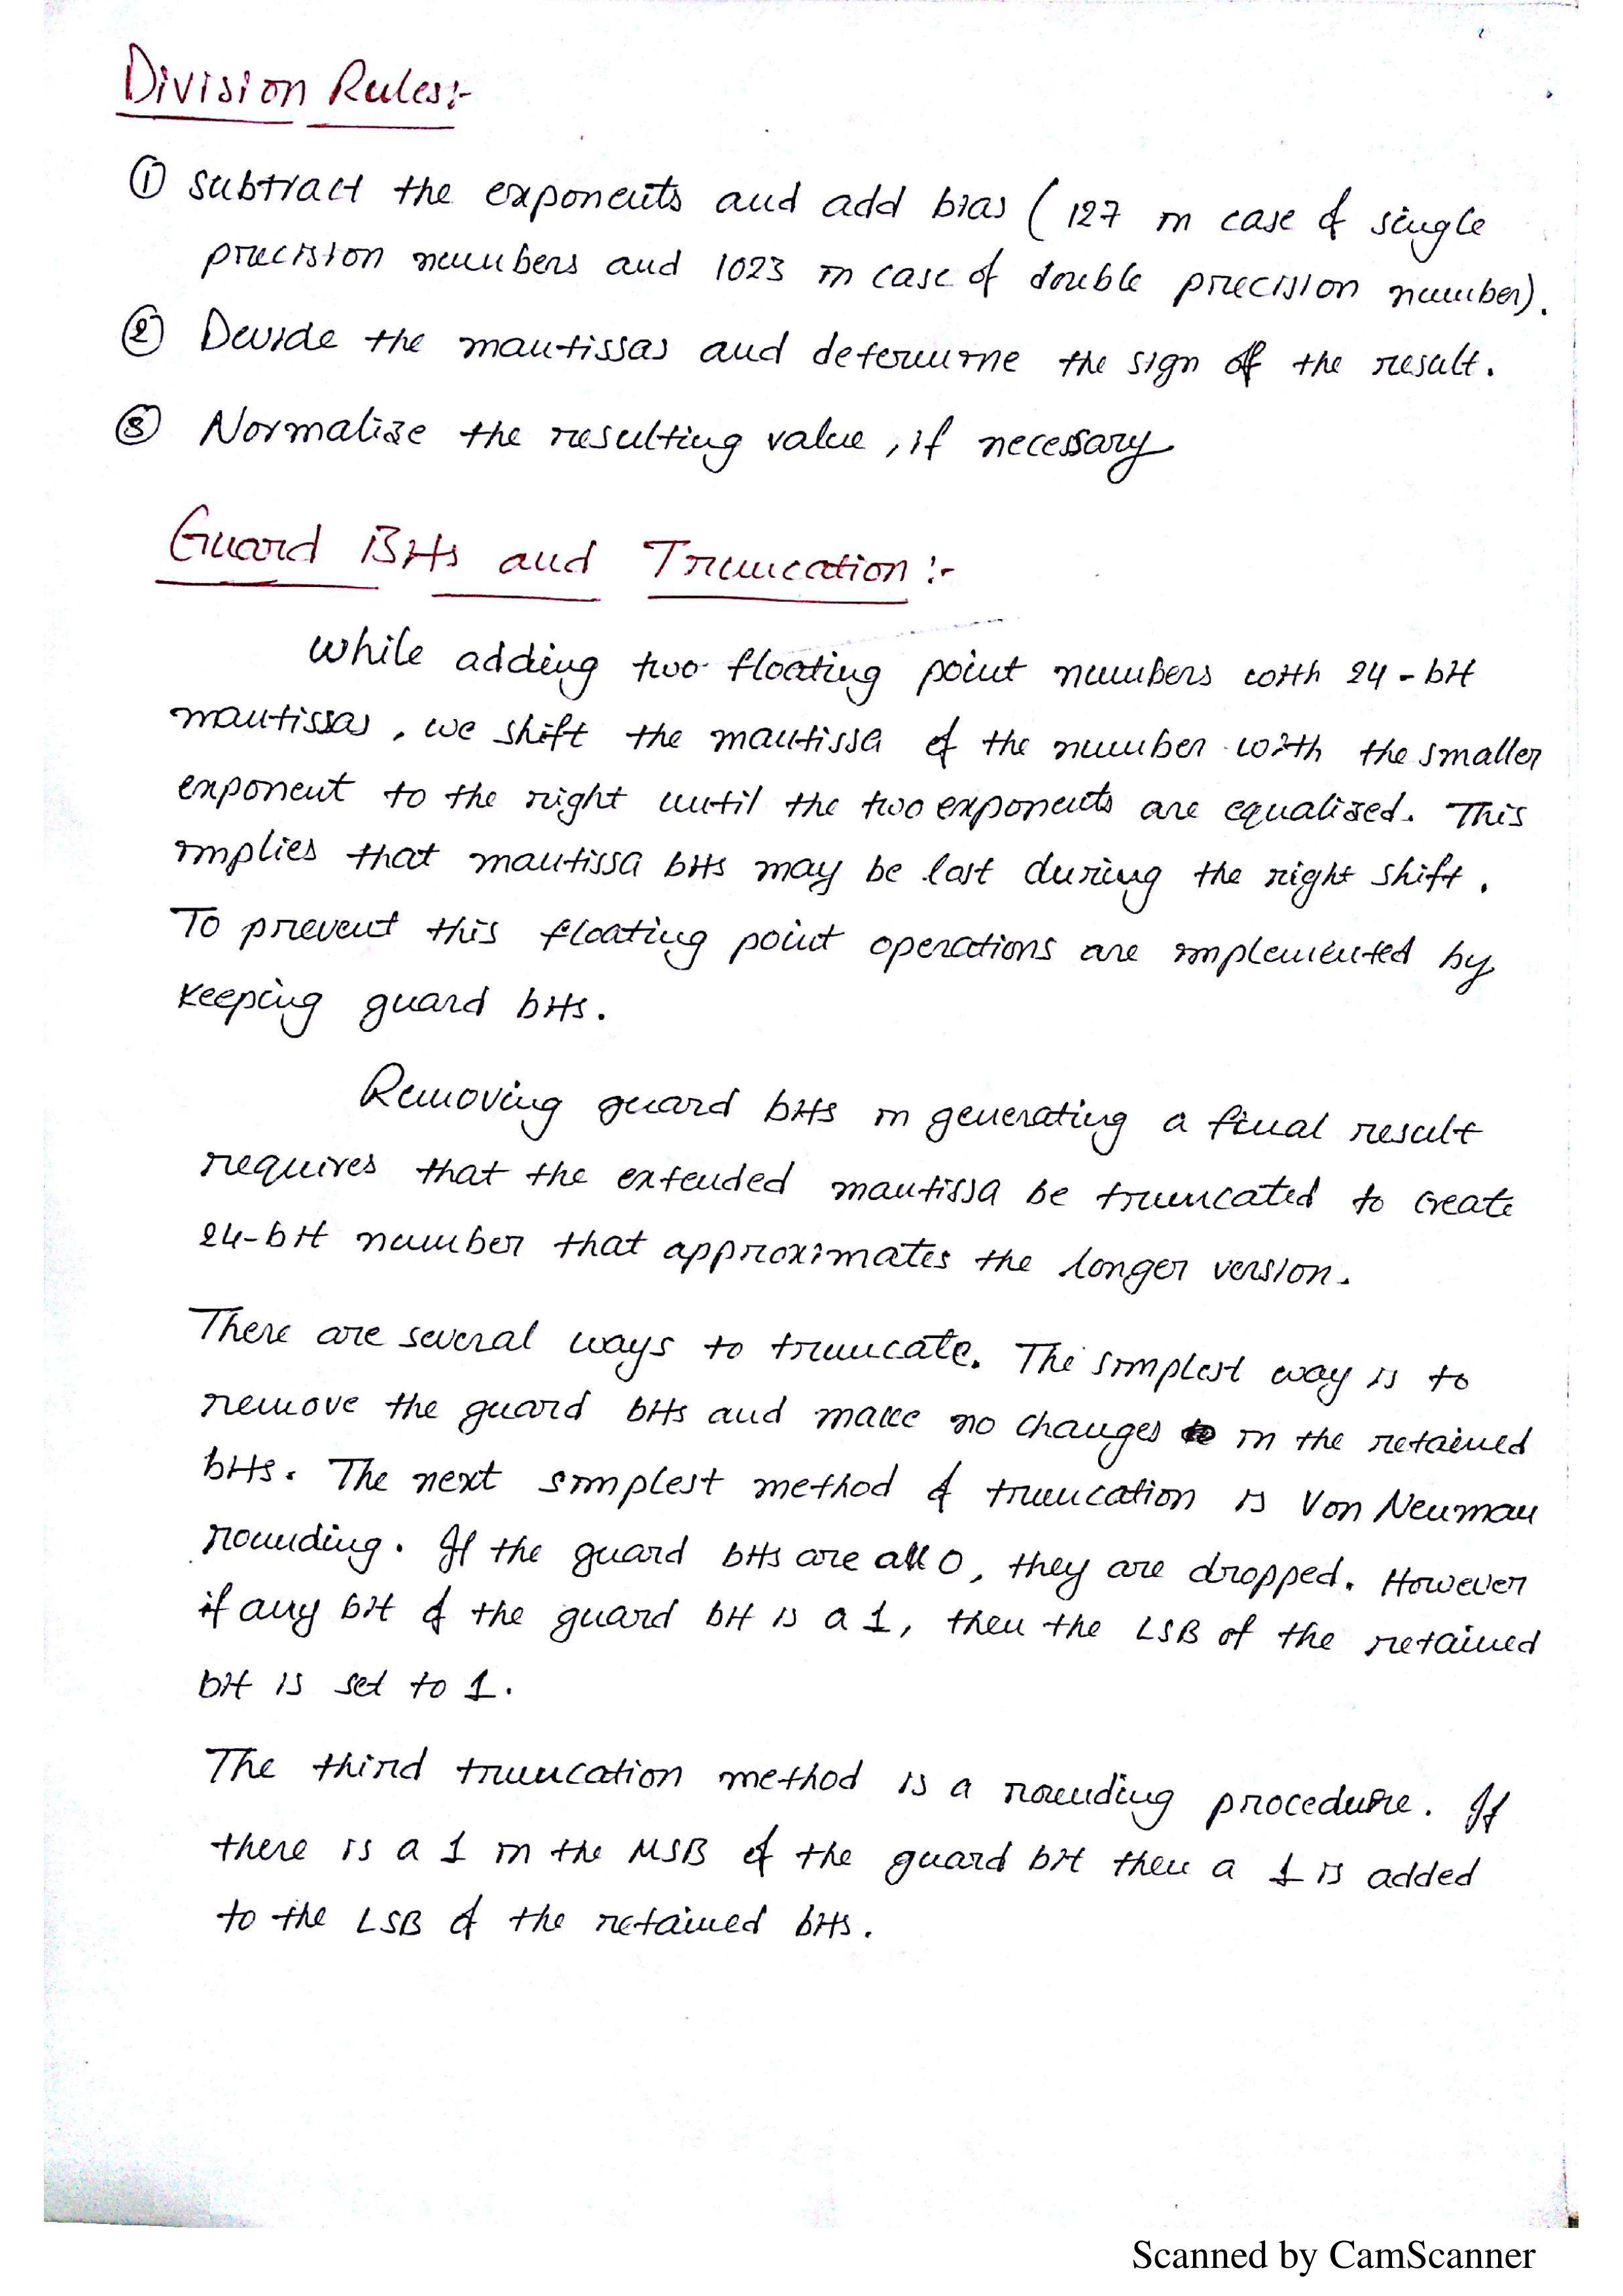 Division Rules:-
① Subtract the exponents and add bias (127 in case of single
precision numbers and 1023 in case of double precision number).
② Devide the mantissas and determine the sign of the result.
③ Normalize the resulting value, if necessary
Guard Bits and Truncation :-
While adding two floating point numbers with 24-bit
mantissas, we shift the mantissa of the number with the smaller
exponent to the right until the two exponents are equalized. This
implies that mantissa bits may be lost during the right shift.
To prevent this floating point operations are implemented by
keeping guard bits.
Removing guard bits in generating a final result
requires that the extended mantissa be truncated to create
24-bit number that approximates the longer version.
There are several ways to truncate. The simplest way is to
remove the guard bits and make no changes in the retained
bits. The next simplest method of truncation is Von Neuman
rounding. If the guard bits are all 0, they are dropped. However
if any bit of the guard bit is a 1, then the LSB of the retained
bit is set to 1.
The third truncation method is a rounding procedure. If
there is a 1 in the MSB of the guard bit then a 1 is added
to the LSB of the retained bits.
Scanned by CamScanner